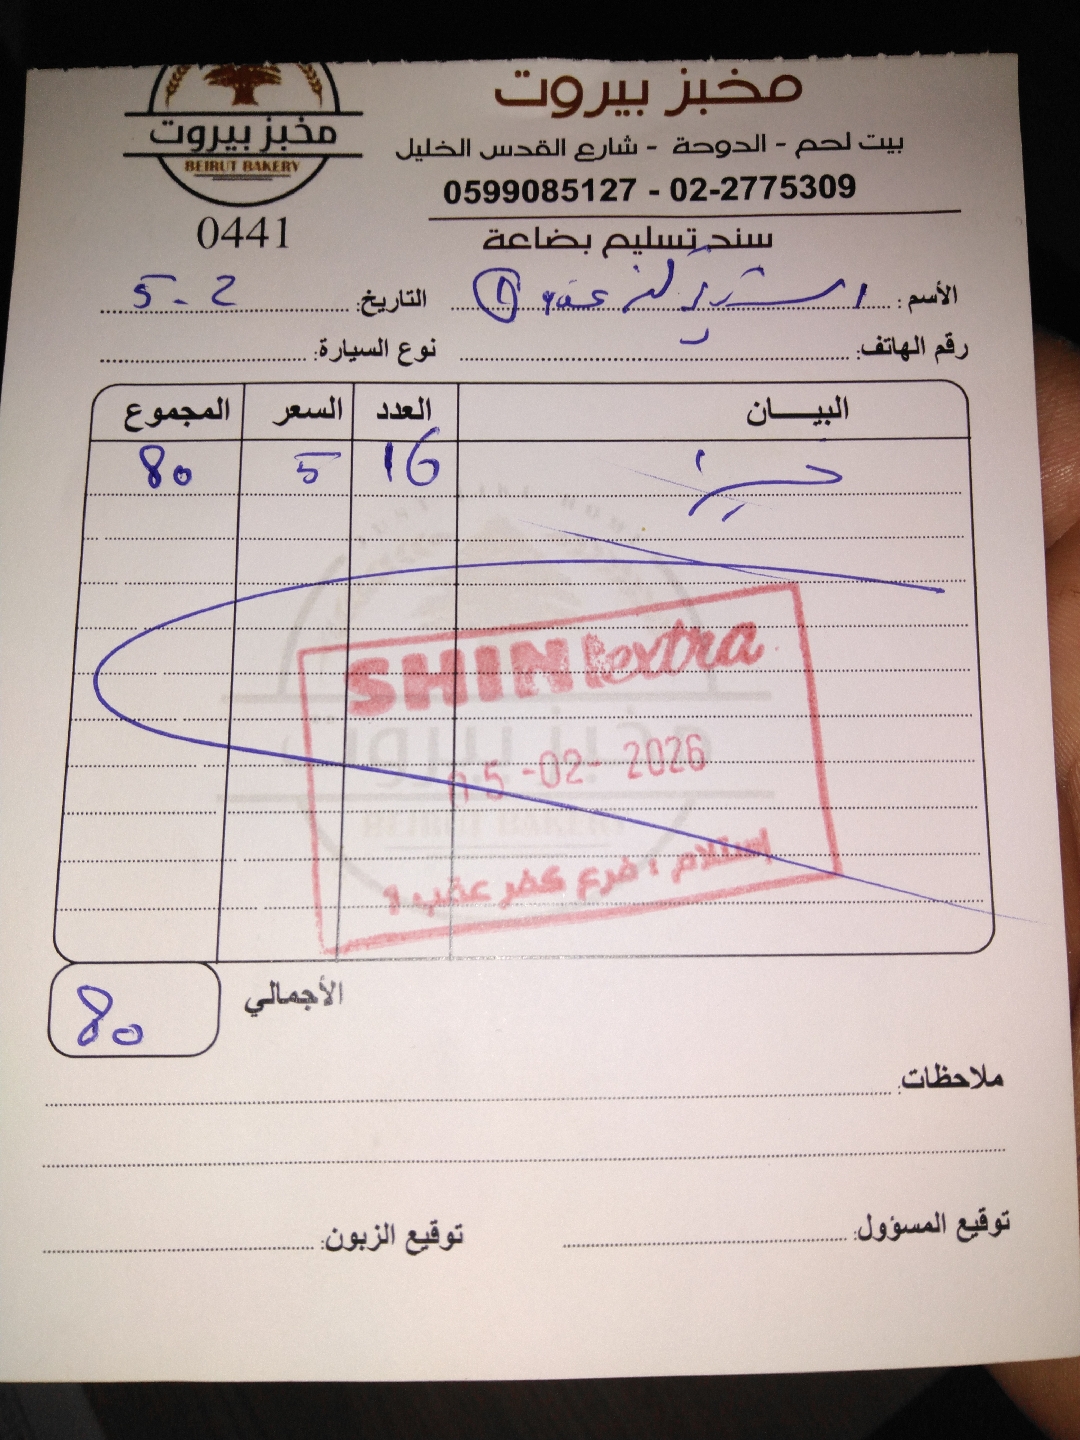 مخبز بيروت
BEIRUT BAKERY
0441
مخبز بيروت
بيت لحم - الدوحة - شارع القدس الخليل
0599085127 - 02-2775309
سند تسليم بضاعة
الأسم:
التاريخ: 5-2
رقم الهاتف:
نوع السيارة:
البيـــان العدد السعر المجموع
خبز 16 5 80
SHINI extra
05-02-2026
إستلام : فرع كفر عقب 9
مخبز بيروت
BEIRUT BAKERY
الأجمالي 80
ملاحظات:
توقيع المسؤول:
توقيع الزبون: